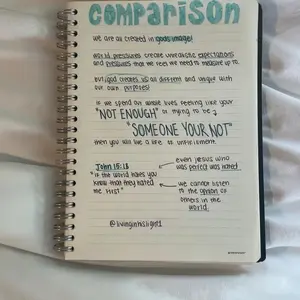 COMPARISON
we are all created in gods image!
World pressures create unrealistic expectations
and pressures that we feel we need to measure up to.
but, god creates us all different and unique with
our own purposes!
if we spend our whole lives feeling like your
"NOT ENOUGH" or trying to be
"SOMEONE YOUR NOT"
then you will live a life of unfulfillment.
John 15:18
"if the world hates you
know that they hated
me FIRST"
even jesus who
was perfect was hated
we cannot listen
to the opinion of
others in the
world.
@livinginhislight1